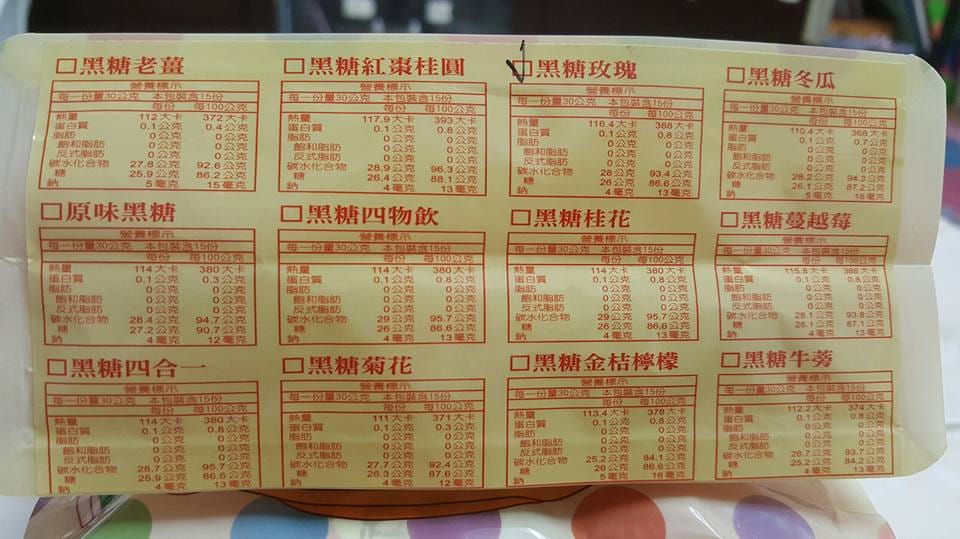 □黑糖老薑
營養標示
每一份量30公克 本包裝含15份
每份 每100公克
熱量 112大卡 372大卡
蛋白質 0.1公克 0.4公克
脂肪 0公克 0公克
飽和脂肪 0公克 0公克
反式脂肪 0公克 0公克
碳水化合物 27.8公克 92.6公克
糖 25.9公克 86.2公克
鈉 5毫克 15毫克
□黑糖紅棗桂圓
營養標示
每一份量30公克 本包裝含15份
每份 每100公克
熱量 117.9大卡 393大卡
蛋白質 0.1公克 0.8公克
脂肪 0公克 0公克
飽和脂肪 0公克 0公克
反式脂肪 0公克 0公克
碳水化合物 28.9公克 96.3公克
糖 26.4公克 88.1公克
鈉 4毫克 13毫克
□黑糖玫瑰
營養標示
每一份量30公克 本包裝含15份
每份 每100公克
熱量 116.4大卡 388大卡
蛋白質 0.1公克 0.8公克
脂肪 0公克 0公克
飽和脂肪 0公克 0公克
反式脂肪 0公克 0公克
碳水化合物 28公克 93.4公克
糖 26公克 86.6公克
鈉 4毫克 13毫克
□黑糖冬瓜
營養標示
每一份量30公克 本包裝含15份
每份 每100公克
熱量 110.4大卡 368大卡
蛋白質 0.1公克 0.7公克
脂肪 0公克 0公克
飽和脂肪 0公克 0公克
反式脂肪 0公克 0公克
碳水化合物 28.2公克 94.3公克
糖 26.1公克 87.2公克
鈉 5毫克 16毫克
□原味黑糖
營養標示
每一份量30公克 本包裝含15份
每份 每100公克
熱量 114大卡 380大卡
蛋白質 0.1公克 0.3公克
脂肪 0公克 0公克
飽和脂肪 0公克 0公克
反式脂肪 0公克 0公克
碳水化合物 28.4公克 94.7公克
糖 27.2公克 90.7公克
鈉 4毫克 12毫克
□黑糖四物飲
營養標示
每一份量30公克 本包裝含15份
每份 每100公克
熱量 114大卡 380大卡
蛋白質 0.1公克 0.8公克
脂肪 0公克 0公克
飽和脂肪 0公克 0公克
反式脂肪 0公克 0公克
碳水化合物 29公克 95.7公克
糖 26公克 86.6公克
鈉 4毫克 13毫克
□黑糖桂花
營養標示
每一份量30公克 本包裝含15份
每份 每100公克
熱量 114大卡 380大卡
蛋白質 0.1公克 0.8公克
脂肪 0公克 0公克
飽和脂肪 0公克 0公克
反式脂肪 0公克 0公克
碳水化合物 29公克 95.7公克
糖 26公克 86.6公克
鈉 4毫克 13毫克
□黑糖蔓越莓
營養標示
每一份量30公克 本包裝含15份
每份 每100公克
熱量 115.8大卡 386大卡
蛋白質 0.1公克 0.8公克
脂肪 0公克 0公克
飽和脂肪 0公克 0公克
反式脂肪 0公克 0公克
碳水化合物 28.1公克 93.8公克
糖 26.1公克 87.1公克
鈉 4毫克 13毫克
□黑糖四合一
營養標示
每一份量30公克 本包裝含15份
每份 每100公克
熱量 114大卡 380大卡
蛋白質 0.1公克 0.8公克
脂肪 0公克 0公克
飽和脂肪 0公克 0公克
反式脂肪 0公克 0公克
碳水化合物 28.7公克 95.7公克
糖 25.9公克 86.6公克
鈉 4毫克 13毫克
□黑糖菊花
營養標示
每一份量30公克 本包裝含15份
每份 每100公克
熱量 111大卡 371大卡
蛋白質 0.1公克 0.3公克
脂肪 0公克 0公克
飽和脂肪 0公克 0公克
反式脂肪 0公克 0公克
碳水化合物 27.7公克 92.4公克
糖 26.3公克 87.6公克
鈉 4毫克 12毫克
□黑糖金桔檸檬
營養標示
每一份量30公克 本包裝含15份
每份 每100公克
熱量 113.4大卡 378大卡
蛋白質 0.1公克 0.8公克
脂肪 0公克 0公克
飽和脂肪 0公克 0公克
反式脂肪 0公克 0公克
碳水化合物 25.2公克 84.1公克
糖 26公克 86.6公克
鈉 5毫克 16毫克
□黑糖牛蒡
營養標示
每一份量30公克 本包裝含15份
每份 每100公克
熱量 112.2大卡 374大卡
蛋白質 0.1公克 0.8公克
脂肪 0公克 0公克
飽和脂肪 0公克 0公克
反式脂肪 0公克 0公克
碳水化合物 28.7公克 93.7公克
糖 25.2公克 84.2公克
鈉 4毫克 13毫克